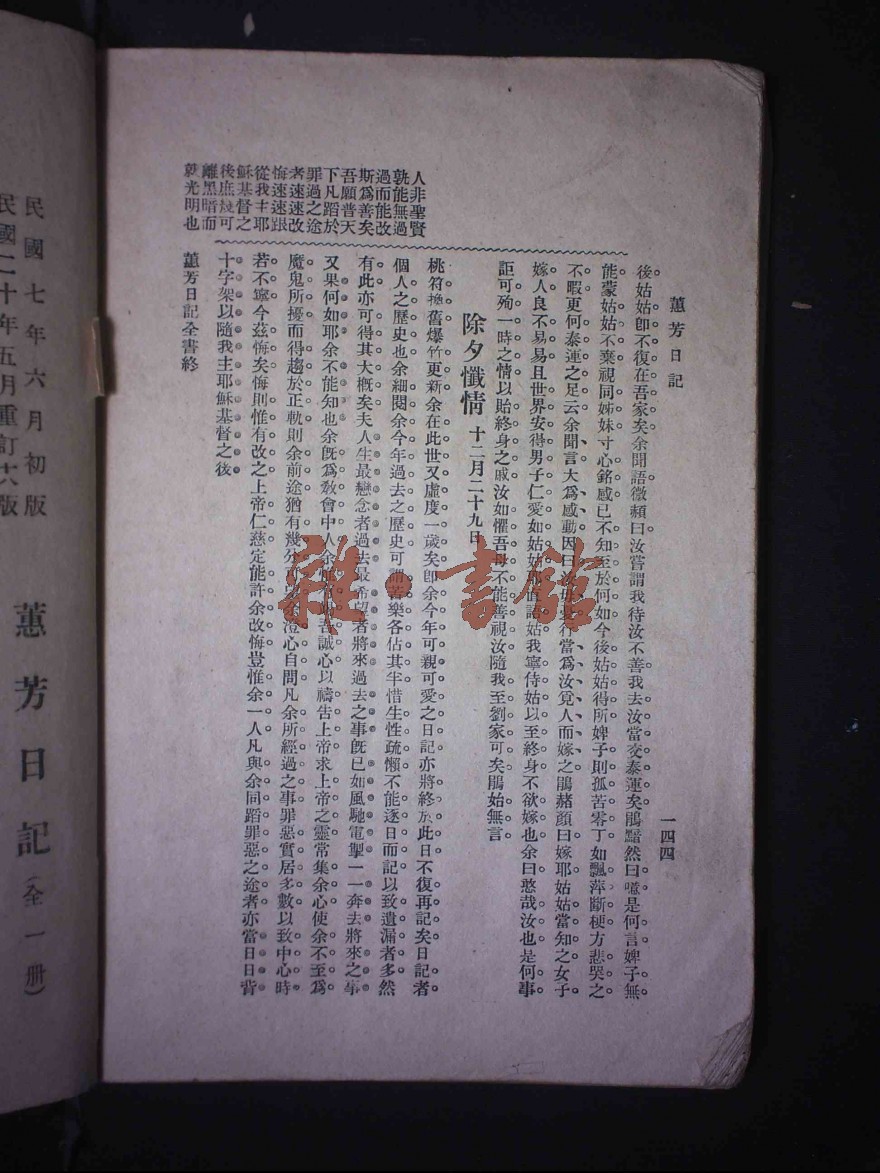 蕙芳日記
一四四
人非聖賢
孰能無過
過而能改
斯為善矣
吾願普天
下凡蹈於
罪過之途
者速速改
悔速速跟
從我主耶
穌基督之
後庶幾可
離黑暗而
就光明也
後姑姑卽不復在吾家矣余聞語微頼曰汝嘗謂我待汝不善我去汝當交泰運矣鵑黯然曰噫是何言婢子無
能蒙姑姑不棄視同姊妹寸心銘感已不知至於何如今後姑姑得所婢子則孤苦零丁如飄萍斷梗方悲哭之
不暇更何泰運之足云余聞言大為感動因曰 當為汝覓人而嫁之鵑赭顏曰嫁耶姑姑當知之女子
嫁人良不易易且世界安得男子仁愛如姑姑 姑我寧侍姑以至終身不欲嫁也余曰憨哉汝也是何事
詎可殉一時之情以貽終身之戚汝如懼吾母不能善視汝隨我至劉家可矣鵑始無言
除夕懺情 十二月二十九日
桃符換舊爆竹更新余在此世又虛度一歲矣卽余今年可親可愛之日記亦將終於此日不復再記矣日記者
個人之歷史也余細閱余今年過去之歷史可謂苦樂各佔其半惜生性疏懶不能逐日而記以致遺漏者多然
有此亦可得其大概矣夫人生最戀念者過去最希望者將來過去之事旣已如風馳電掣一一奔去將來之事
又果何如耶余不能知也余旣為敎會中人余惟 吾誠心以禱告上帝求上帝之靈常集余心使余不至為
魔鬼所擾而得趨於正軌則余前途猶有幾分 余澄心自問凡余所經過之事罪惡實居多數以致中心時
若不寧今茲悔矣悔則惟有改之上帝仁慈定能許余改悔豈惟余一人凡與余同蹈罪惡之途者亦當日日背
十字架以隨我主耶穌基督之後
蕙芳日記全書終
蕙芳日記（全一册）
民國七年六月初版
民國二十年五月重訂六版
雜·書館